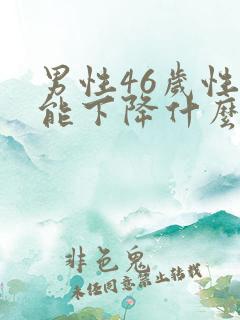 男性46歲性
能下降什麼
非色鬼
未经同意禁止转载